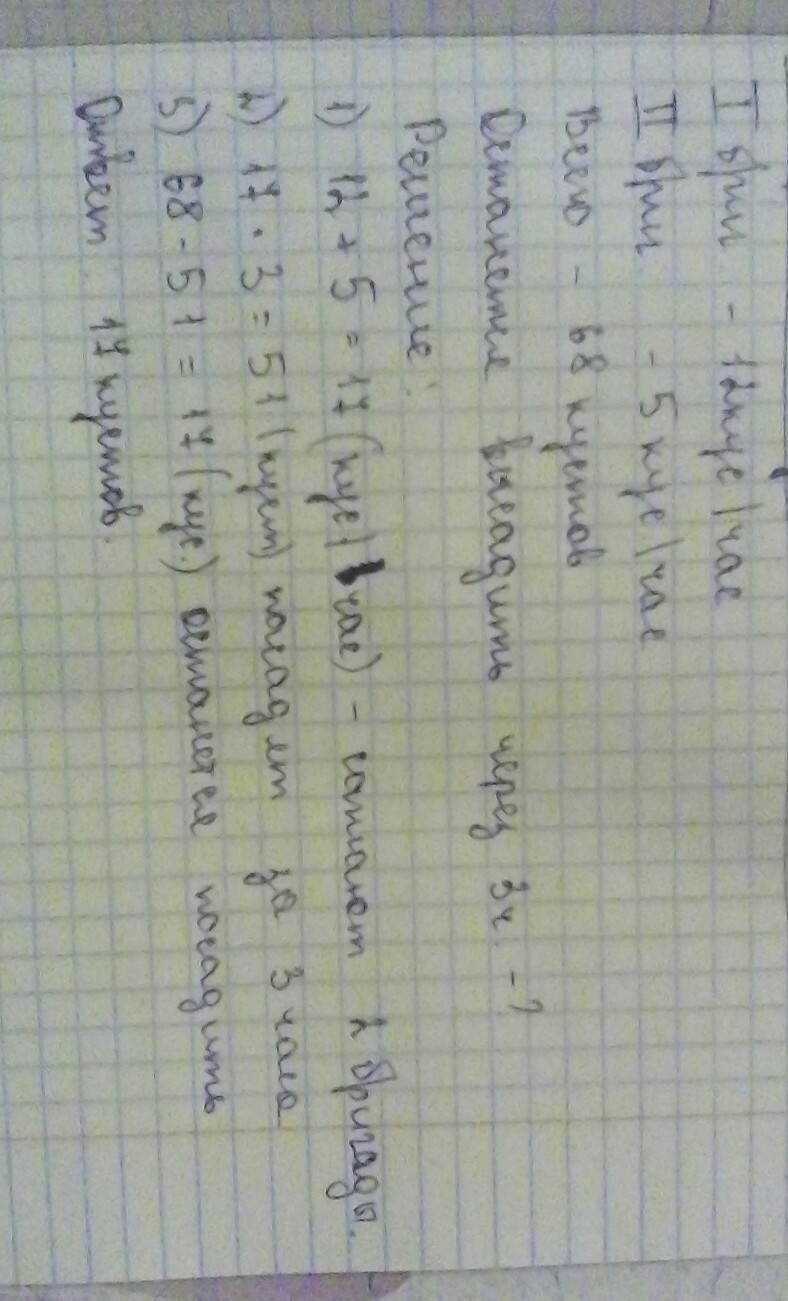 I бриг. - 12 кус/час
II бриг. - 5 кус/час
Всего - 68 кустов
Останется высадить через 3ч. - ?
Решение:
1) 12 + 5 = 17 (кус/час) - сажают 2 бригады.
2) 17 • 3 = 51 (куст) посадят за 3 часа
3) 68 - 51 = 17 (кус.) останется посадить
Ответ: 17 кустов.